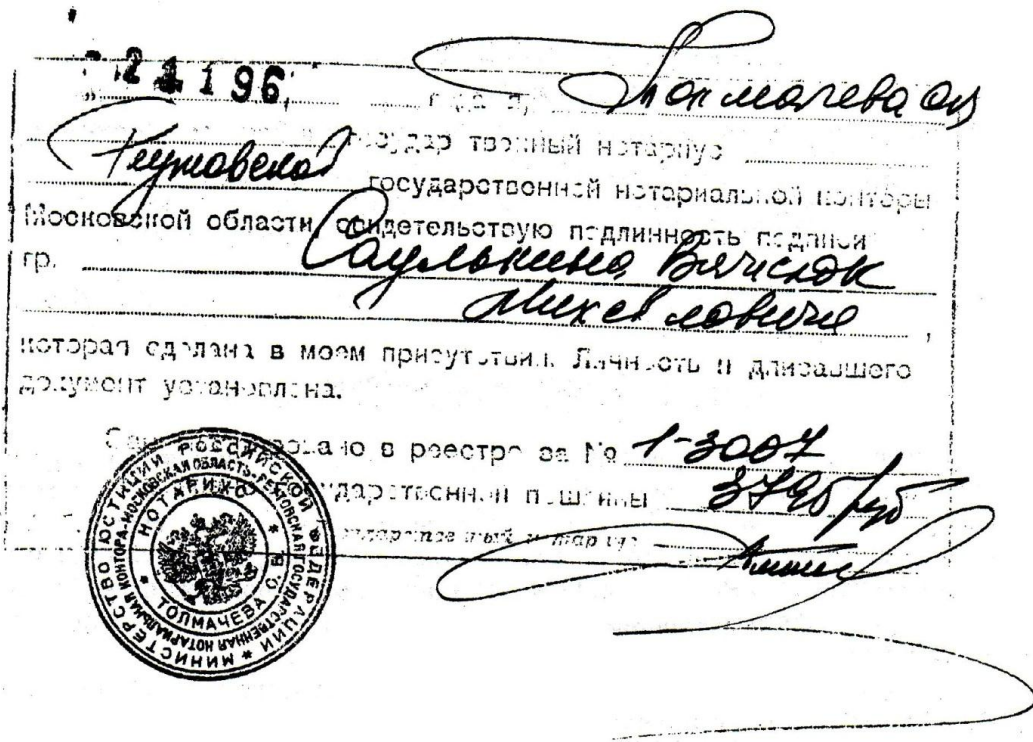 21 1 96, года, Толмачева ОВ
государственный нотариус
Реутовской государственной нотариальной конторы
Московской области, свидетельствую подлинность подписи
гр. Саулькина Вячеслав
Михайловича ,
которая сделана в моем присутствии. Личность подписавшего
документ установлена.
Зарегистрировано в реестре за № 1-3007
государственной пошлины 3795 руб
государственный нотариус
МИНИСТЕРСТВО ЮСТИЦИИ РОССИЙСКОЙ ФЕДЕРАЦИИ *
МОСКОВСКАЯ ОБЛАСТЬ ГОСУДАРСТВЕННАЯ НОТАРИАЛЬНАЯ КОНТОРА
НОТАРИУС
ТОЛМАЧЕВА О. В.